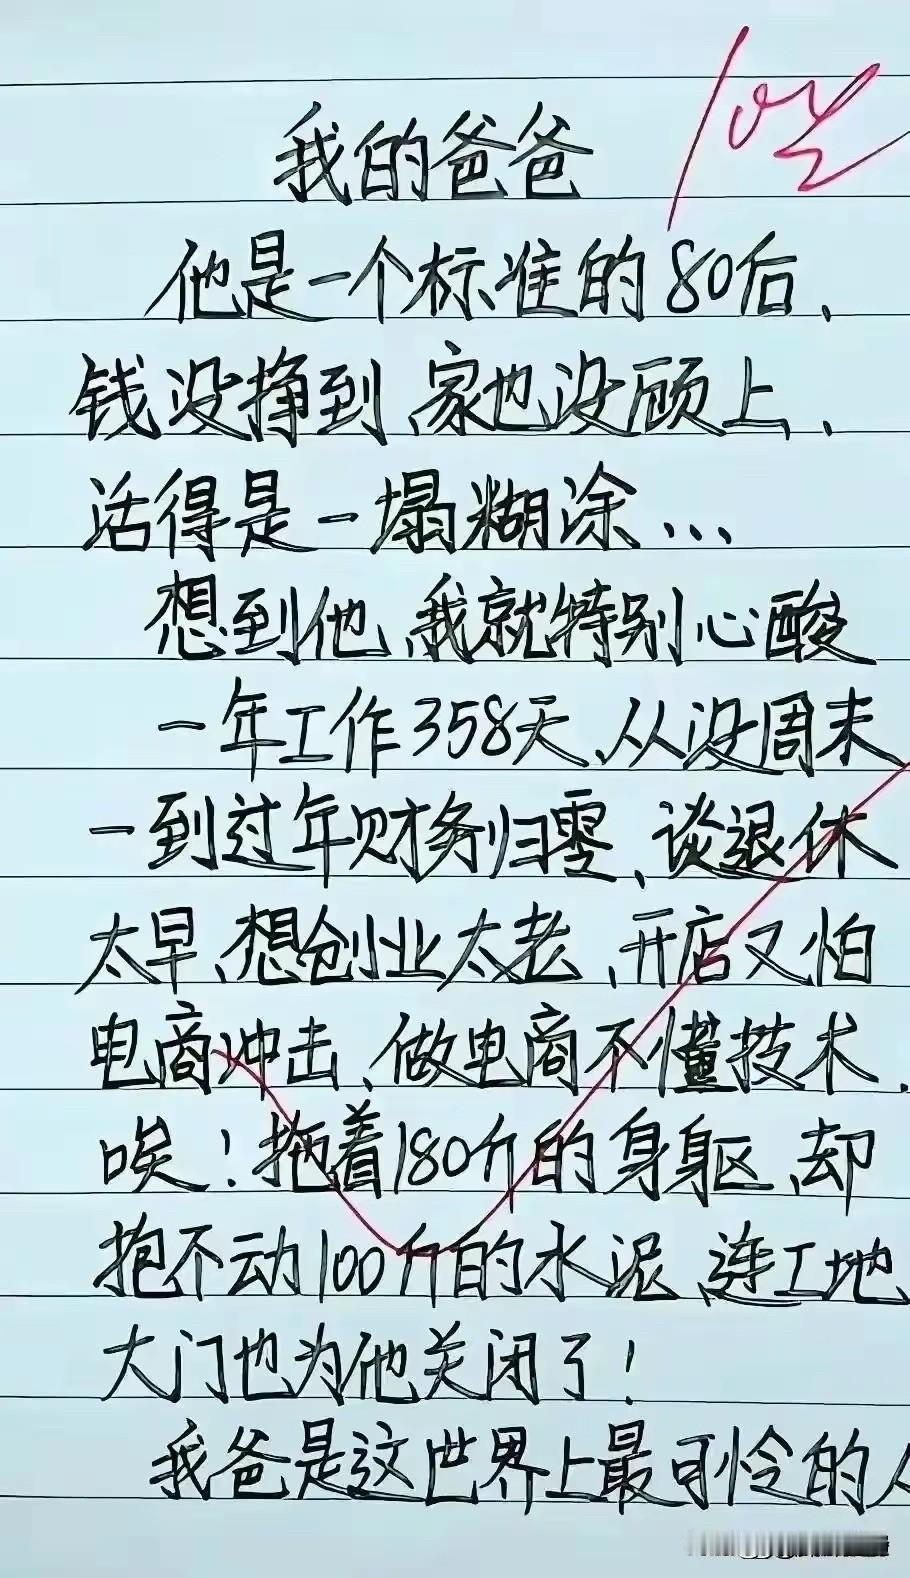 我的爸爸
他是一个标准的80后、
钱没挣到、家也没顾上、
活得是一塌糊涂…
想到他、我就特别心酸
一年工作358天、从没周末
一到过年财务归零、谈退休
太早、想创业太老、开店又怕
电商冲击、做电商不懂技术、
唉！拖着180斤的身躯、却
抱不动100斤的水泥、连工地
大门也为他关闭了！
我爸是这世界上最可怜的人